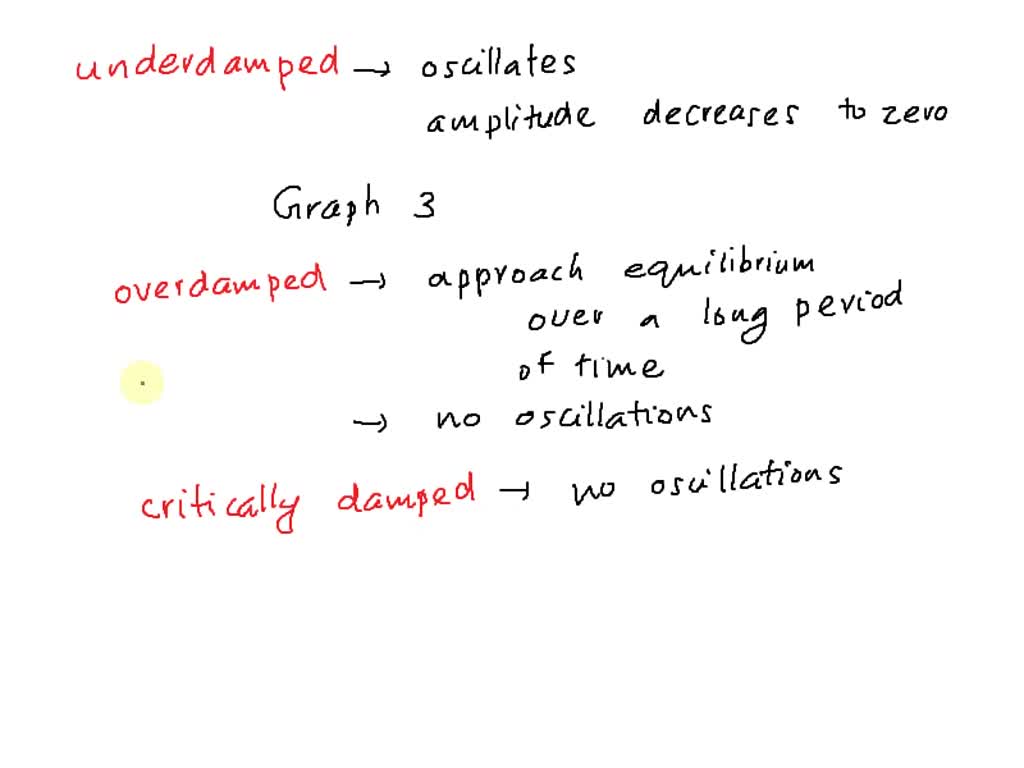 underdamped → oscillates
amplitude decreases to zero
Graph 3
overdamped → approach equilibrium
over a long period
of time
→ no oscillations
critically damped → no oscillations